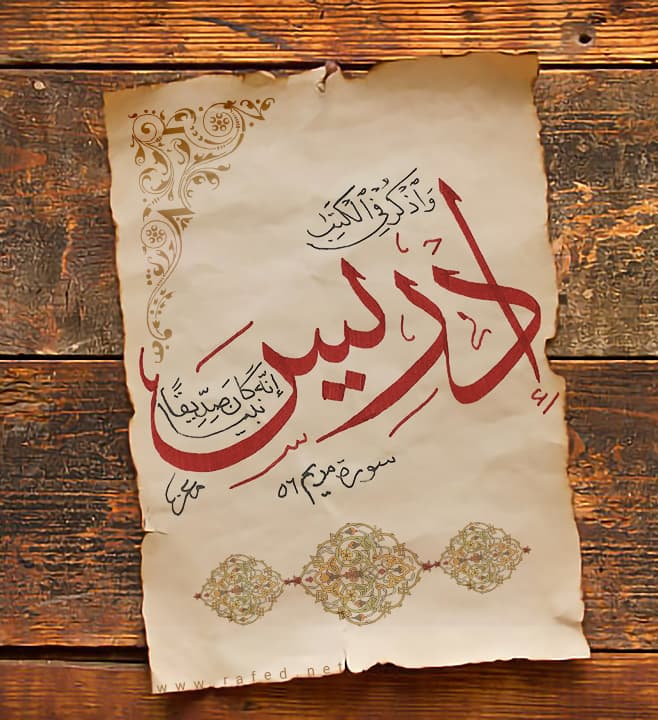 وَٱذْكُرْ فِي ٱلْكِتَٰبِ
إدريس
إِنَّهُ كَانَ صِدِّيقًا
نبيا
سورة مريم ٥٦
www.rafed.net